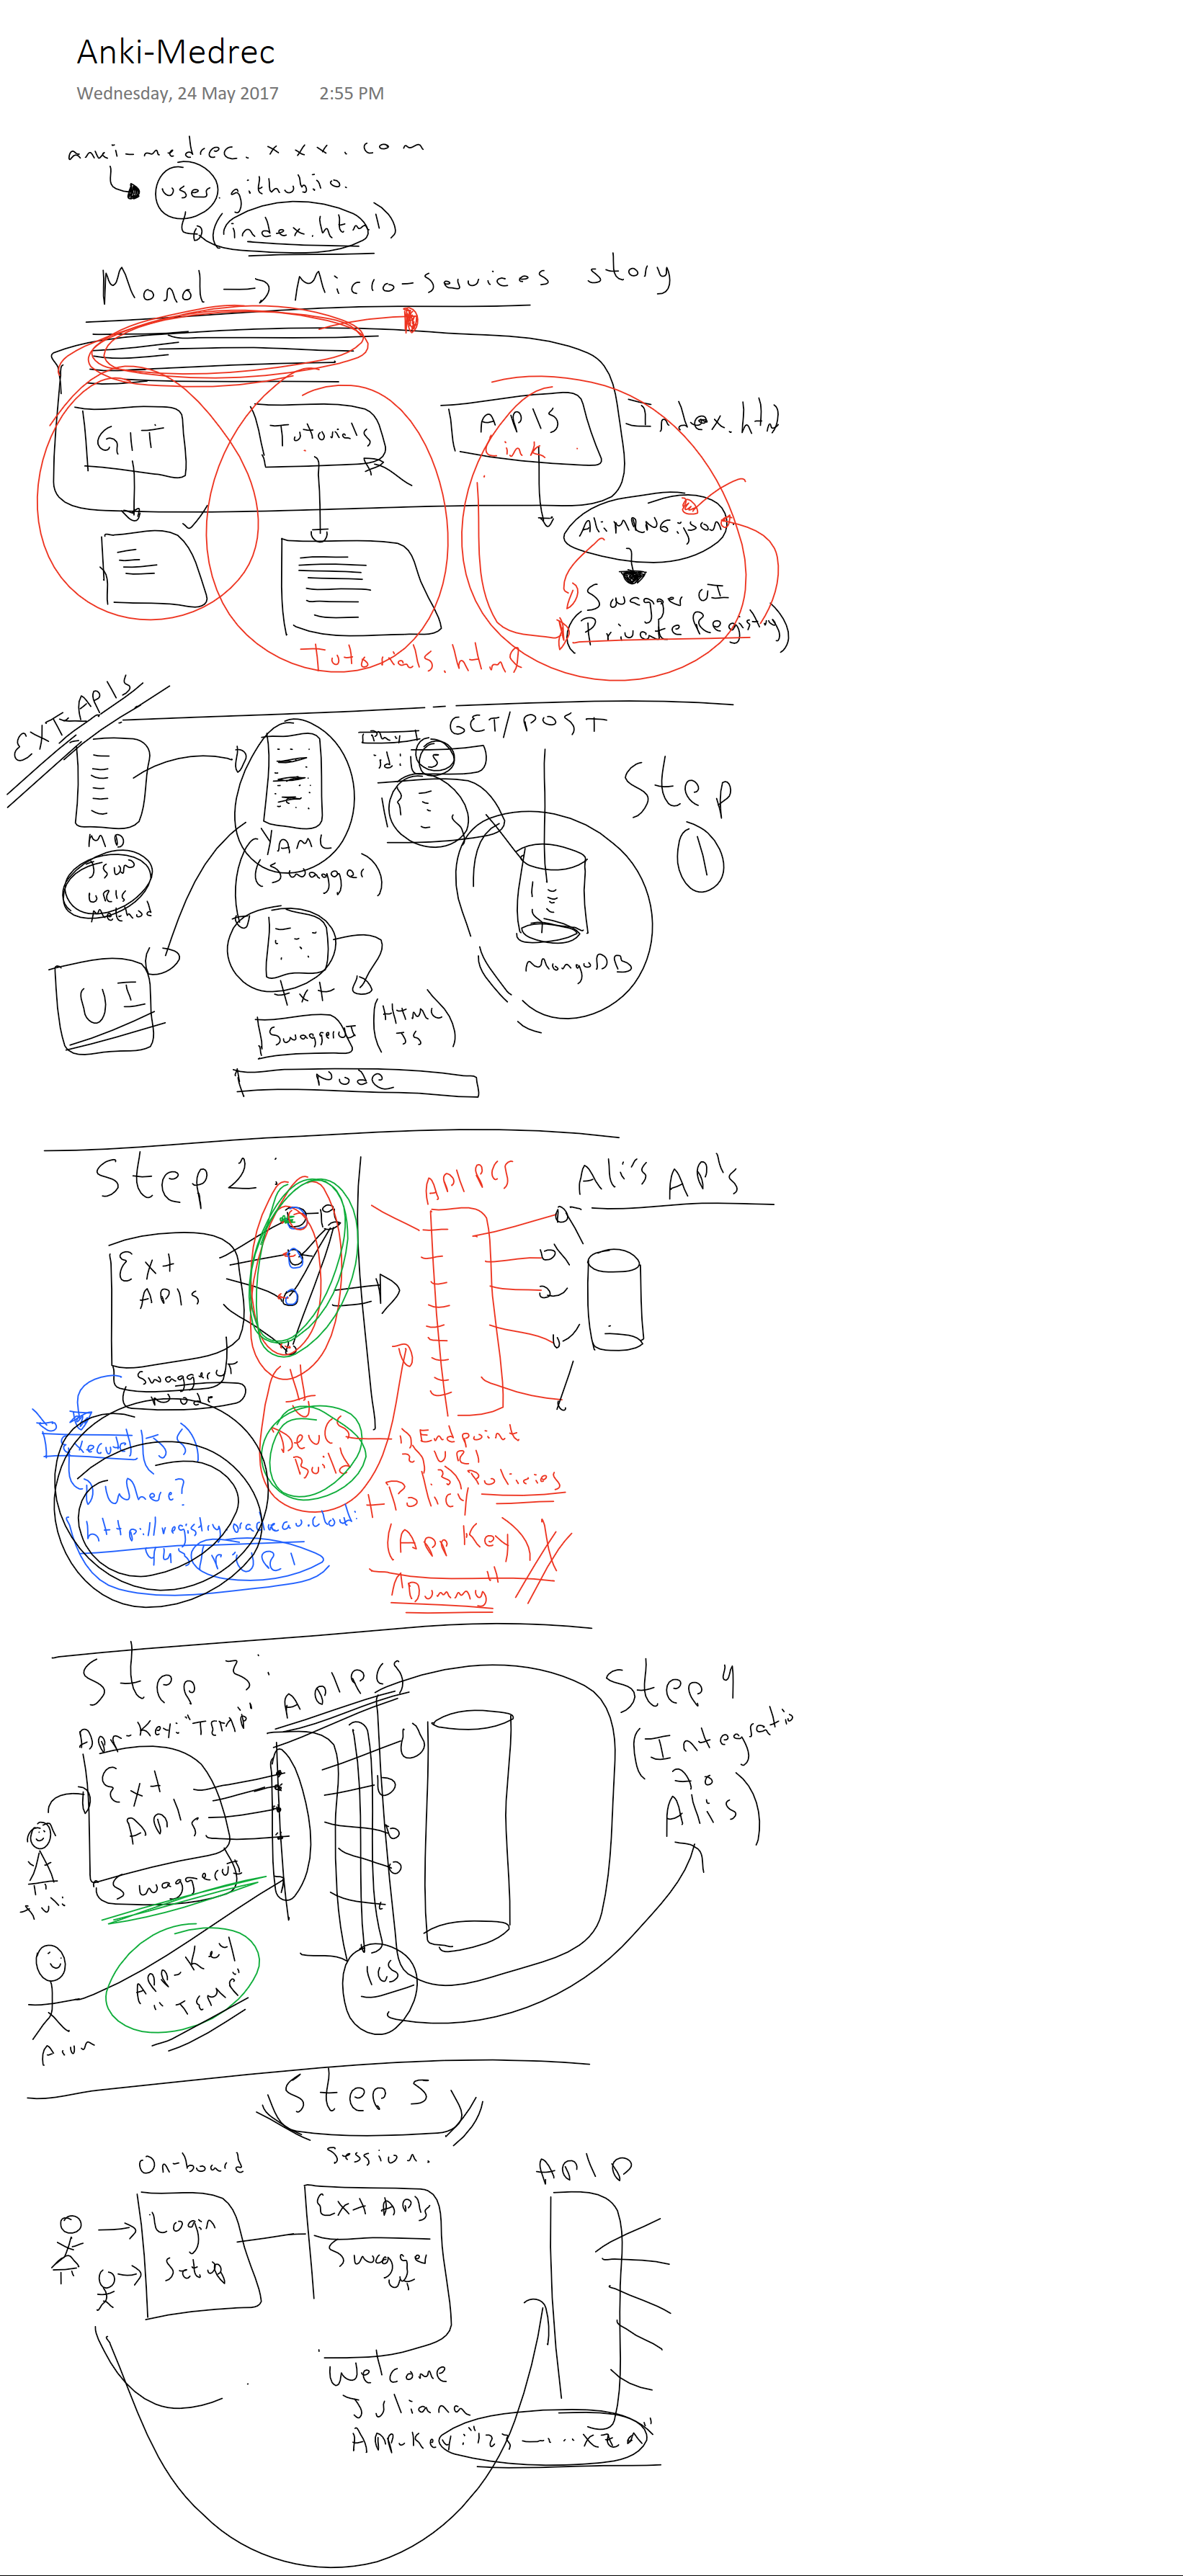 Anki-Medrec
Wednesday, 24 May 2017 2:55 PM
anki-medrec.xxx.com
user.github.io.
(index.html)
Monol → Micro-services story
GIT
Tutorials
APIS
Link
Index.html
AliMRNG.json
Swagger UI
(Private Registry)
Tutorials.html
EXT-APIS
GET/POST
id: 5
Step
1
MD
JSON
URIS
Method
YAML
(Swagger)
MongoDB
UI
txt
SwaggerUI
(HTML
JS)
Node
Step 2:
API PCS
Ali's API's
Ext
APIs
SwaggerUI
Node
Execute (JS)
Where?
DevCS
Build
1) Endpoint
2) URI
3) Policies
+ Policy
(App Key)
"Dummy"
443/rURI
Step 3:
API PCS
Step 4
(Integratio
to
Alis)
App-Key:"TEMP"
Ext
API's
SwaggerUI
Juli
APP-Key
"TEMP"
ICS
Step 5
On-board
Session.
API P
Login
Setup
Ext APIs
Swagger
UI
Welcome
Juliana
App-Key:"123-...xza"